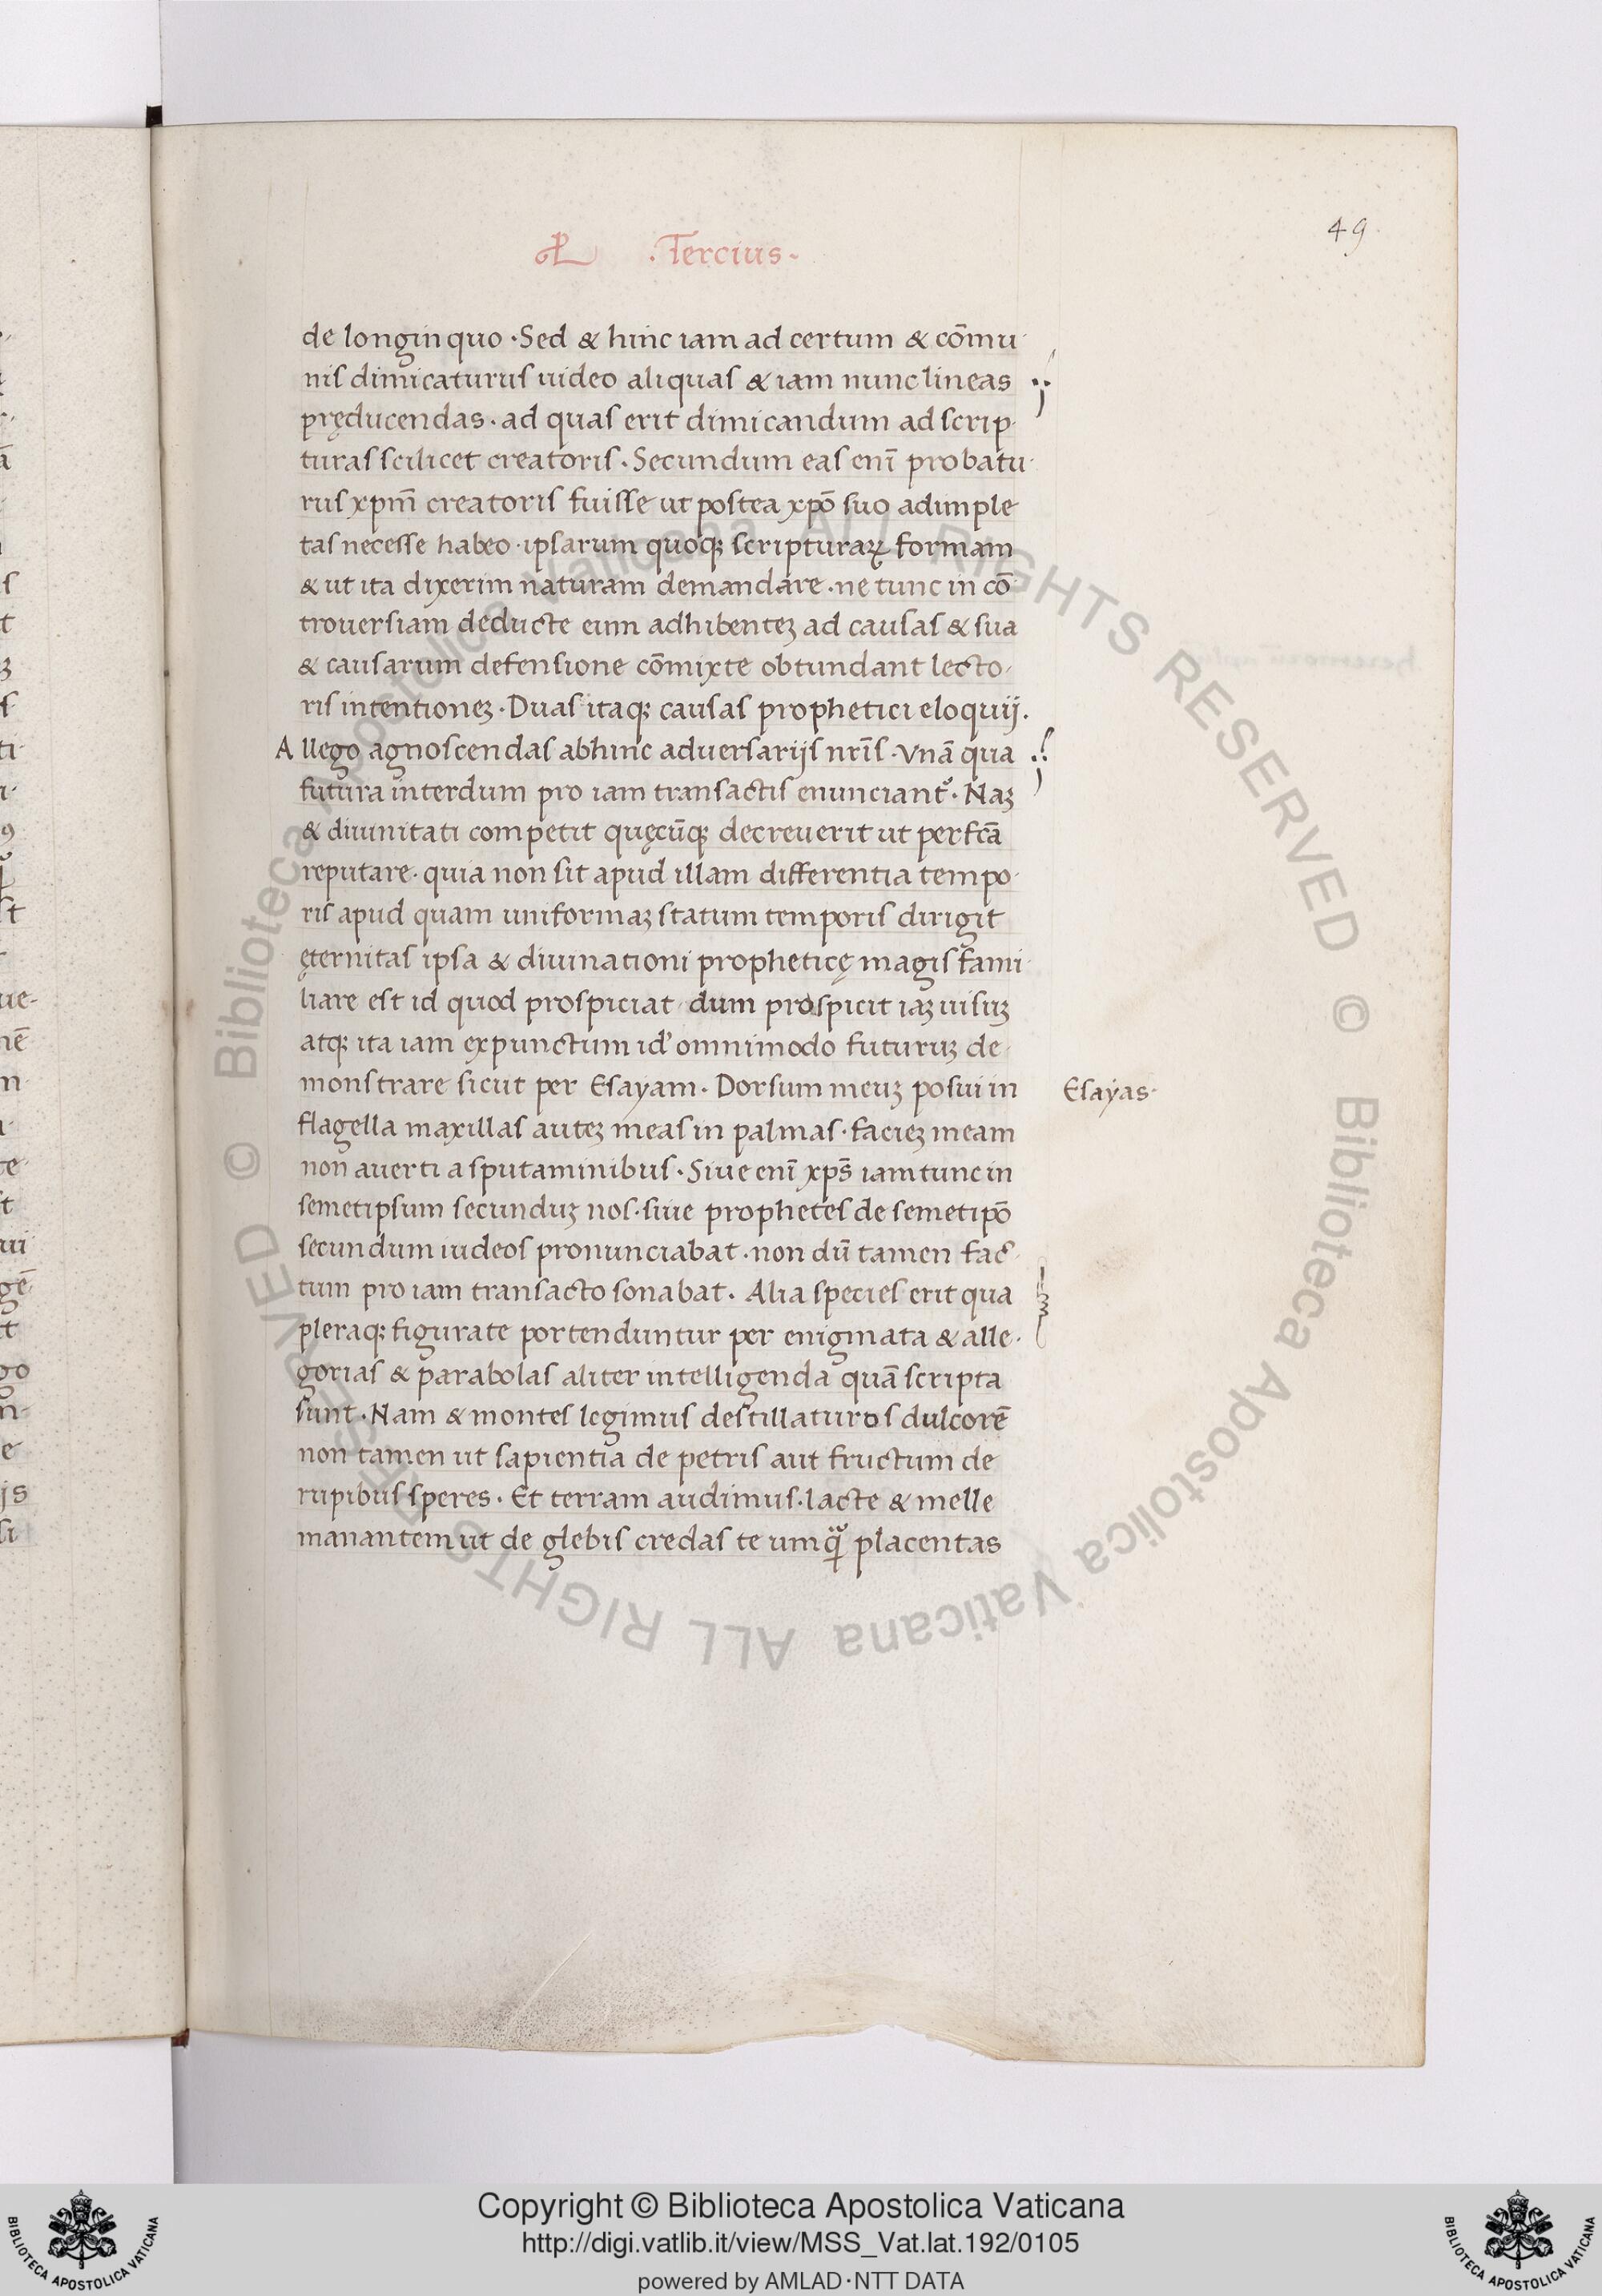 49
·Tercius·
de longinquo · Sed & hinc iam ad certum & cōmu
nis dimicaturus uideo aliquas & iam nunc lineas
pręducendas · ad quas erit dimicandum ad scrip
turas scilicet creatoris · Secundum eas enī probatu
rus xpm̄ creatoris fuisse ut postea xpō suo adimple
tas necesse habeo · ipsarum quoqꝫ scripturaꝝ formam
& ut ita dixerim naturam demandare · ne tunc in cō
trouersiam deducte cum adhibenteꝫ ad causas & sua
& causarum defensione cōmixte obtundant lecto
ris intentioneꝫ · Duas itaqꝫ causas prophetici eloquij.
Allego agnoscendas abhinc aduersarijs nr̄is · Vnā qua
futura interdum pro iam transactis enunciant᷑ · Naꝫ
& diuinitati competit quęcūqꝫ decreuerit ut perfcā
reputare · quia non sit apud illam differentia tempo
ris apud quam uniformaꝫ statum temporis dirigit
ęternitas ipsa & diuinationi propheticę magis fami
liare est id quod prospiciat dum prospicit iaꝫ uisuꝫ
atqꝫ ita iam expunctum id' omnimodo futuruꝫ de
monstrare sicut per Esayam · Dorsum meuꝫ posui in
Esayas·
flagella maxillas auteꝫ meas in palmas · facieꝫ meam
non auerti a sputaminibus · Siue enī xps̄ iam tunc in
semetipsum secunduꝫ nos · siue prophetes de semetipō
secundum iudeos pronunciabat · non dū tamen fac
tum pro iam transacto sonabat · Alia species erit qua
pleraqꝫ figurate portenduntur per enigmata & alle
gorias & parabolas aliter intelligenda quā scripta
sunt · Nam & montes legimus destillaturos dulcorē
non tamen ut sapientia de petris aut fructum de
rupibus speres · Et terram audimus · lacte & melle
manantem ut de glebis credas te umqͣ᷑ placentas
Copyright © Biblioteca Apostolica Vaticana
http://digi.vatlib.it/view/MSS_Vat.lat.192/0105
powered by AMLAD·NTT DATA
BIBLIOTECA APOSTOLICA VATICANA
BIBLIOTECA APOSTOLICA VATICANA
© Biblioteca Apostolica Vaticana ALL RIGHTS RESERVED © Biblioteca Apostolica Vaticana ALL RIGHTS RESERVED